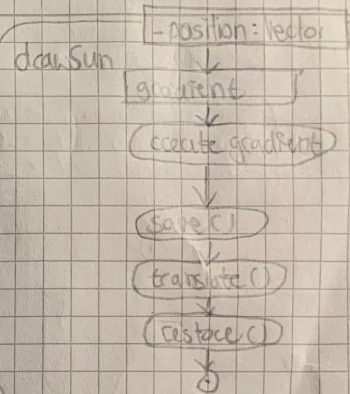 -position: Vector
drawSun
gradient
create gradient
save()
translate()
restore()